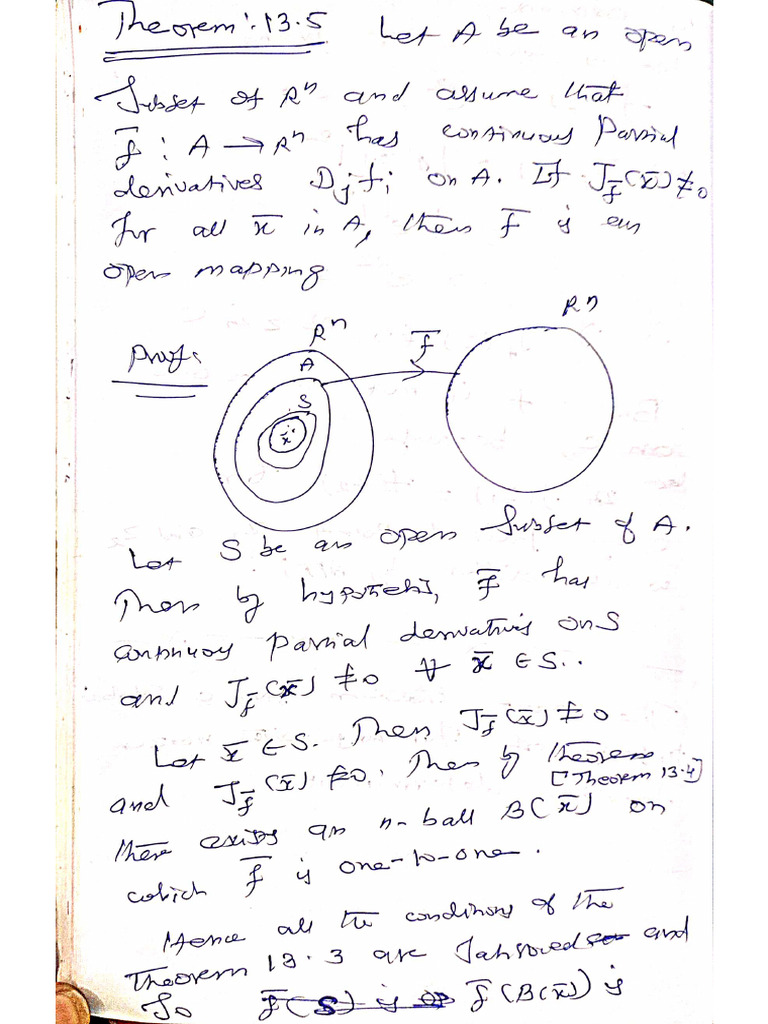 Theorem: 13.5 Let A be an open
Subset of Rⁿ and assume that
f̄ : A → Rⁿ has continuous Partial
derivatives Dⱼfᵢ on A. If J_f̄(x̄) ≠ 0
for all x̄ in A, then f̄ is an
open mapping
Rⁿ
Rⁿ
f̄
Proof:
A
S
x̄
Let S be an open Subset of A.
Then by hypothesis, f̄ has
continuous Partial derivatives on S
and J_f̄(x̄) ≠ 0 ∀ x̄ ∈ S..
Let x̄ ∈ S. Then J_f̄(x̄) ≠ 0
and J_f̄(x̄) ≠ 0. Then by theorem
[Theorem 13.4]
there exists an n-ball B(x̄) on
which f̄ is one-to-one.
Hence all the conditions of the
Theorem 13.3 are Satisfied and
So f̄(S) is op f̄(B(x̄)) is